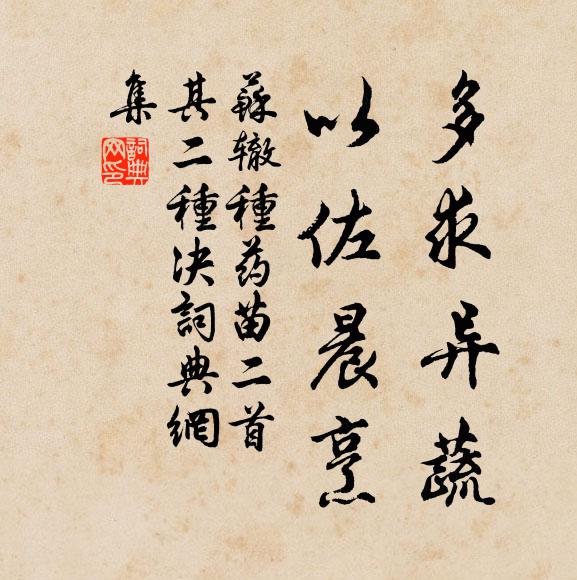 多求异蔬
以佐晨烹
蘇辙種药苗二首
其二種决詞典網
集
詞典
网印